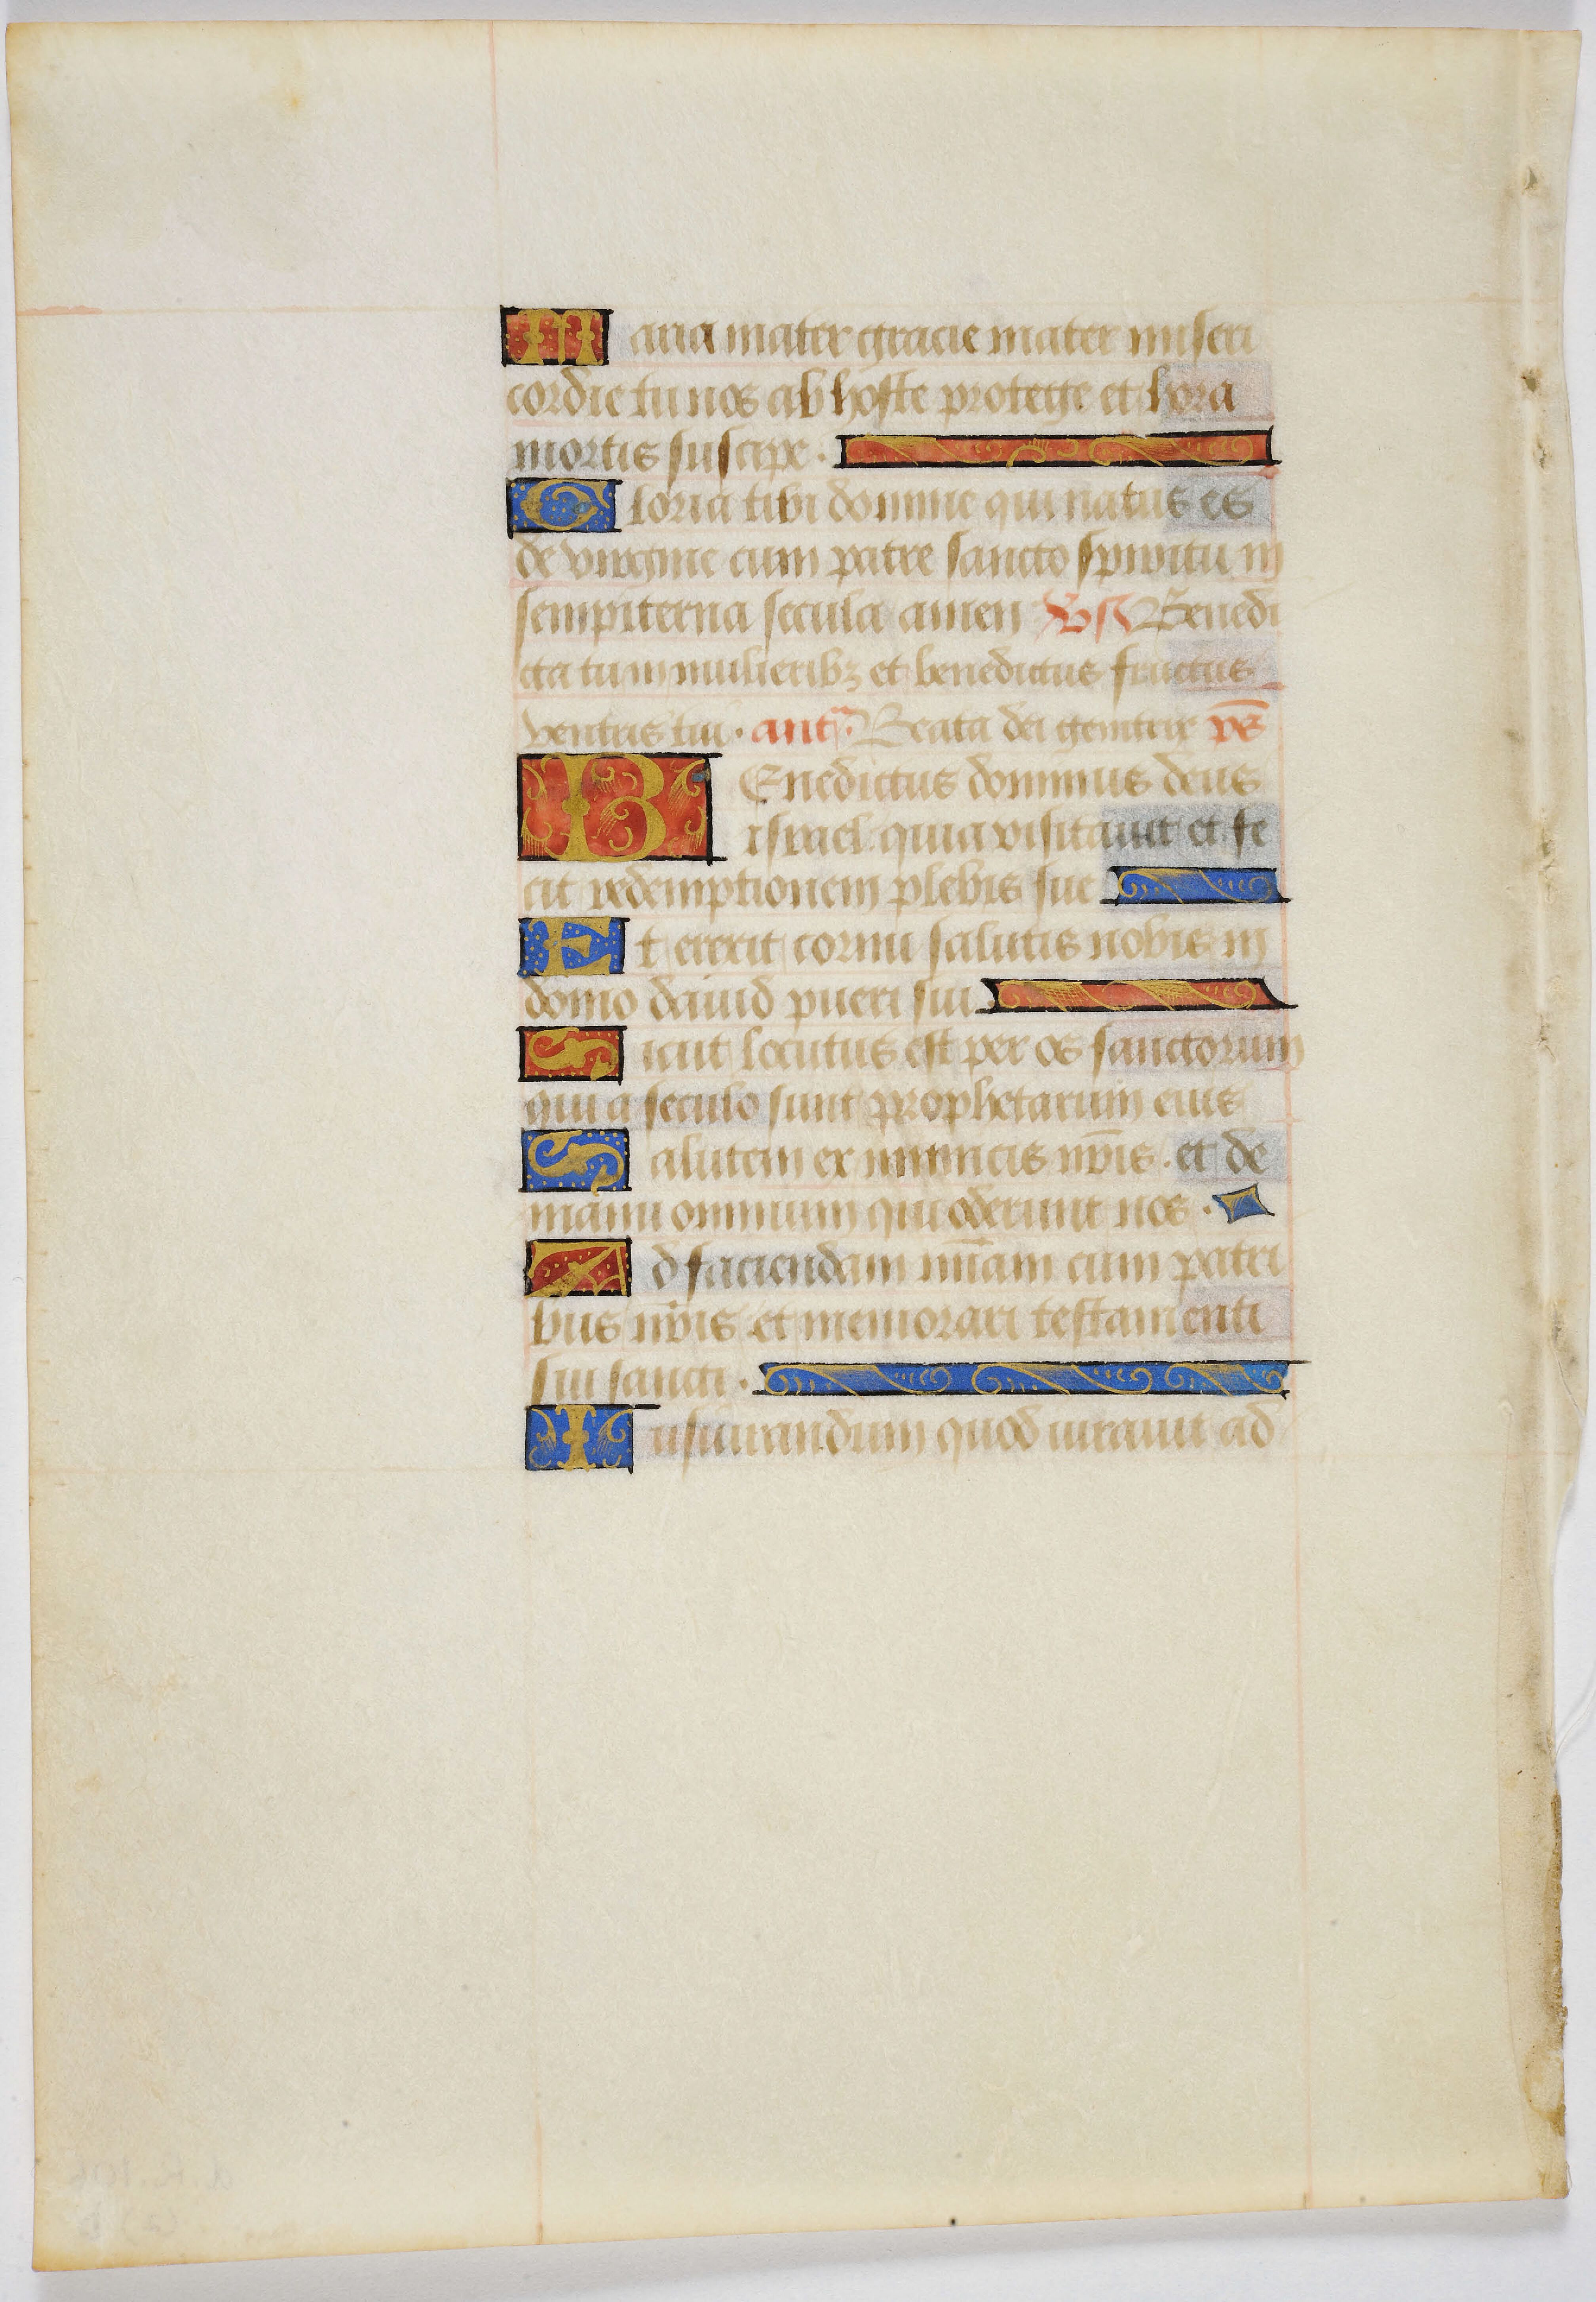 Maria mater gracie mater miseri
cordie tu nos ab hoste protege et hora
mortis suscipe ·
Gloria tibi domine qui natus es
de virgine cum patre sancto spiritu in
sempiterna secula amen Vs Benedi
cta tu in mulieribꝫ et benedictus fructus
ventris tui · antᵃ. Beata dei genitrix pˉs
BEnedictus dominus deus
israel quia visitauit et fe
cit redemptionem plebis sue
Et erexit cornu salutis nobis in
domo dauid pueri sui
Sicut locutus est per os sanctorum
qui a seculo sunt prophetarum eius
Salutem ex inimicis nr̄is · et de
manu omnium qui oderunt nos ·
Ad faciendam mīam cum patri
bus nr̄is et memorari testamenti
sui sancti ·
Iusiurandum quod iurauit ad